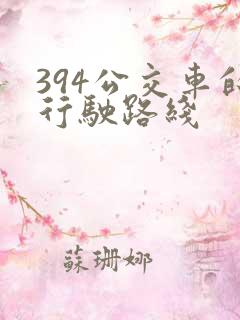 394公交車的
行駛路綫
蘇珊娜